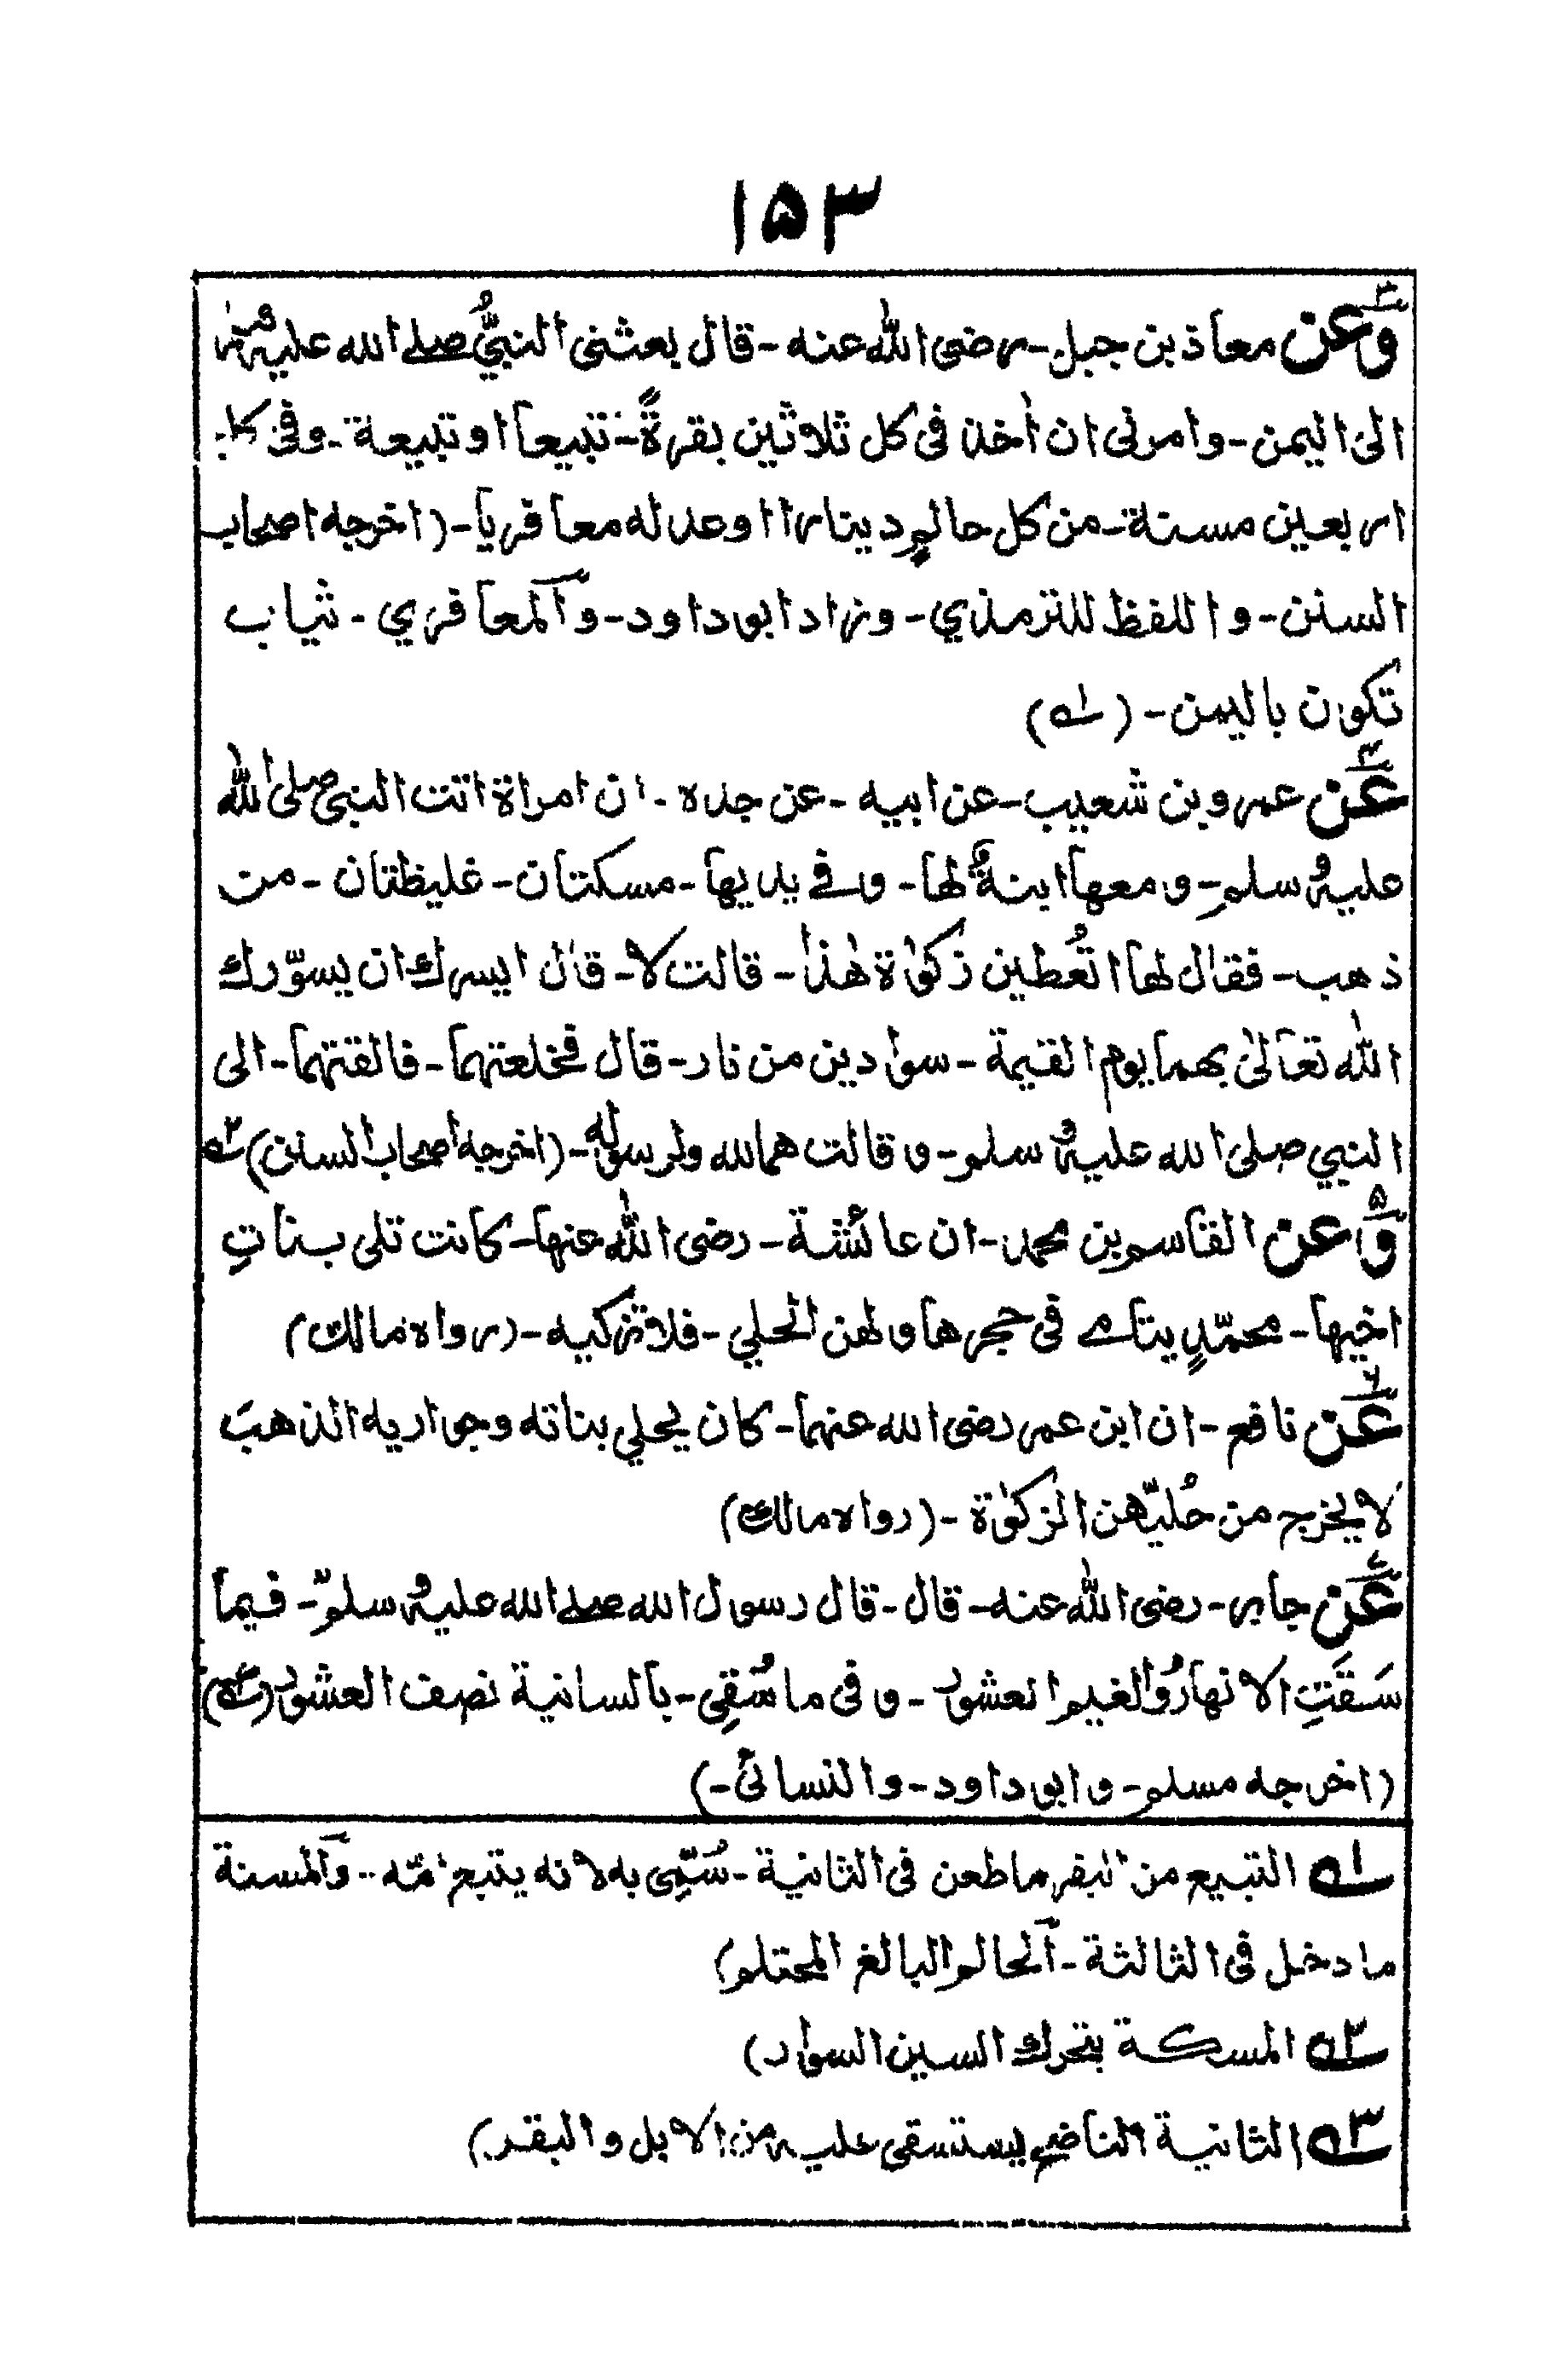 ١٥٣
٣ وعن معاذ بن جبل - رضی الله عنه - قال بعثنی النبیُّ صلے الله علیہ وسلم
الی الیمن - وامرنی ان اٰخذ فی کل ثلاثین بقرةً - تبیعا او تبیعة - وفی کل
اربعین مسنة - من کل حالمٍ دینارا او عدله معافریا - (اخرجه اصحاب
السنن - واللفظ للترمذي - وزاد ابو داود - وَالمعافري - ثیاب
تکون بالیمن - (١ـه)
٤ عن عمرو بن شعیب - عن ابیه - عن جده - ان امراة اتت النبی صلی الله
علیہ وسلم - ومعها ابنةٌ لها - وفے یدیها - مسکتان - غلیظتان - من
ذهب - فقال لها اتُعطین زکوٰة هٰذا - قالت لا - قال ایسرك ان یسوّرك
الله تعالیٰ بهما یوم القیمة - سوارین من نار - قال فخلعتهما - فالقتهما - الی
النبي صلی الله علیہ وسلم - وقالت هما لله ولرسوله - (اخرجه اصحاب السنن) ٢ـه
٥ وعن القاسم بن محمد - ان عائشة - رضی الله عنها - کانت تلی بناتِ
اخیها - محمّدٍ یتامے فی حجرها ولهن الحلي - فلا تزکیه - (رواه مالك)
٦ عن نافع - ان ابن عمر رضی الله عنهما - کان یحلي بناته وجواریه الذهبَ
لا یخرج من حُلیّهن الزکوٰة - (رواه مالك)
٧ عن جابر - رضی الله عنه - قال - قال رسول الله صلے الله علیہ وسلّم - فیما
سَقَتِ الانهارُ والغیم العشور - وفی ما سُقِی - بالسانیة نصف العشور (٣ـه)
(اخرجه مسلم - وابو داود - والنسائی -)
١ـه التبیع من البقر ما طعن فی الثانیة - سُمِّی به لانه یتبع امّه - وَالمسنة
ما دخل فی الثالثة - اَلحالم البالغ المحتلم)
٢ـه المسکة بتحرك السین السوار)
٣ـه الثانیة الناضح یستسقی علیه من الابل والبقر)